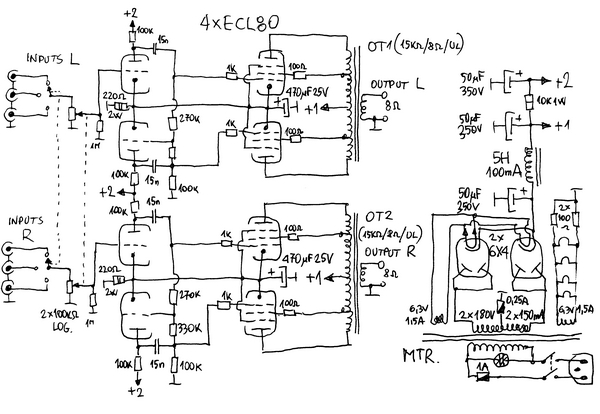 +2
4xECL80
100K
15n
INPUTS L
1K
100Ω
OT1 (15KΩ/8Ω/UL)
OUTPUT L
8Ω
220Ω
2W
470µF 25V
+1
1M
270K
1K
100Ω
100K
15n
100K
+2
100K
15n
INPUTS
R
1K
100Ω
OT2
(15KΩ/8Ω/UL)
OUTPUT R
8Ω
220Ω
2W
470µF 25V
+1
1M
270K
1K
100Ω
330K
2x100KΩ
LOG.
100K
15n
100K
+2
50µF
350V
+2
10K 1W
50µF
250V
+1
5H
100mA
50µF
250V
2x
100
Ω
2x
6X4
6,3V
1,5A
0,25A
2x180V
2x150mA
6,3V 1,5A
MTR.
1A